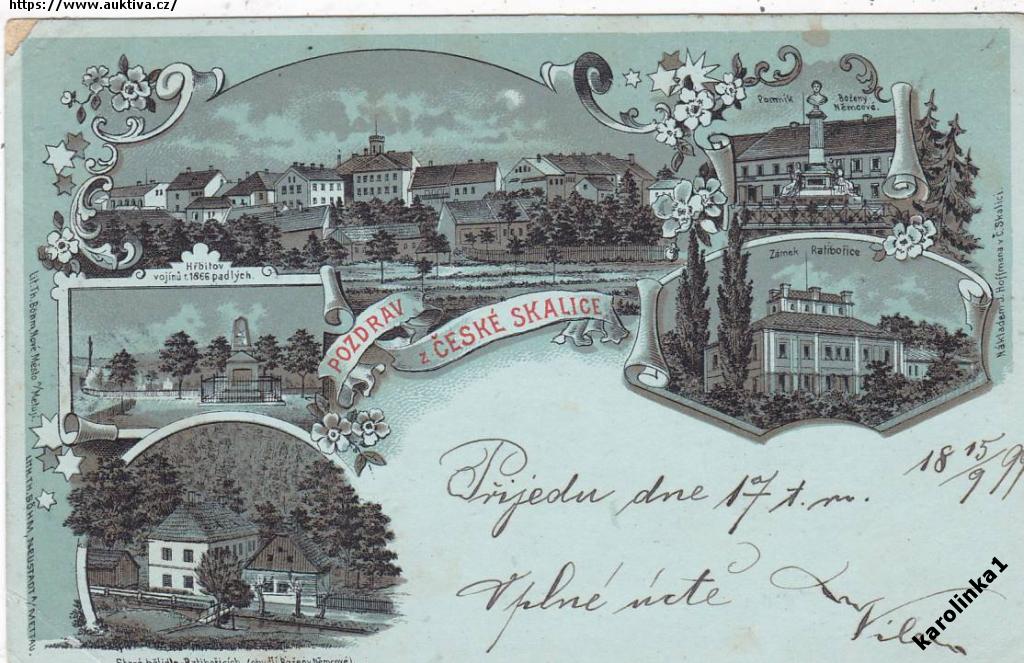 https://www.auktiva.cz/
Pomník Boženy
Němcové.
Hřbitov
vojínů r. 1866 padlých.
Zámek Ratibořice
POZDRAV
z ČESKÉ SKALICE
Lit. Th. Böhm, Nové Město n/Metují.
LITH. TH. BÖHM, NEUSTADT A/METTAU.
Nákladem J. Hoffmana v Č. Skalici.
18 15/9 99
Přijedu dne 17 t. m.
V plné úctě
Staré bělidlo Ratibořicích (chudší Boženy Němcové)
karolinka1